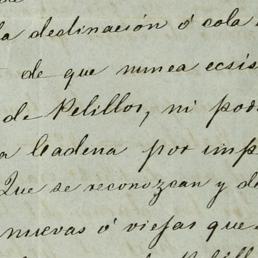 la declinación ó cola
de que nunca ecsis
de Pelillos, ni pod
a Cadena por imp
Que se reconozcan y d
nuevas ó viejas que